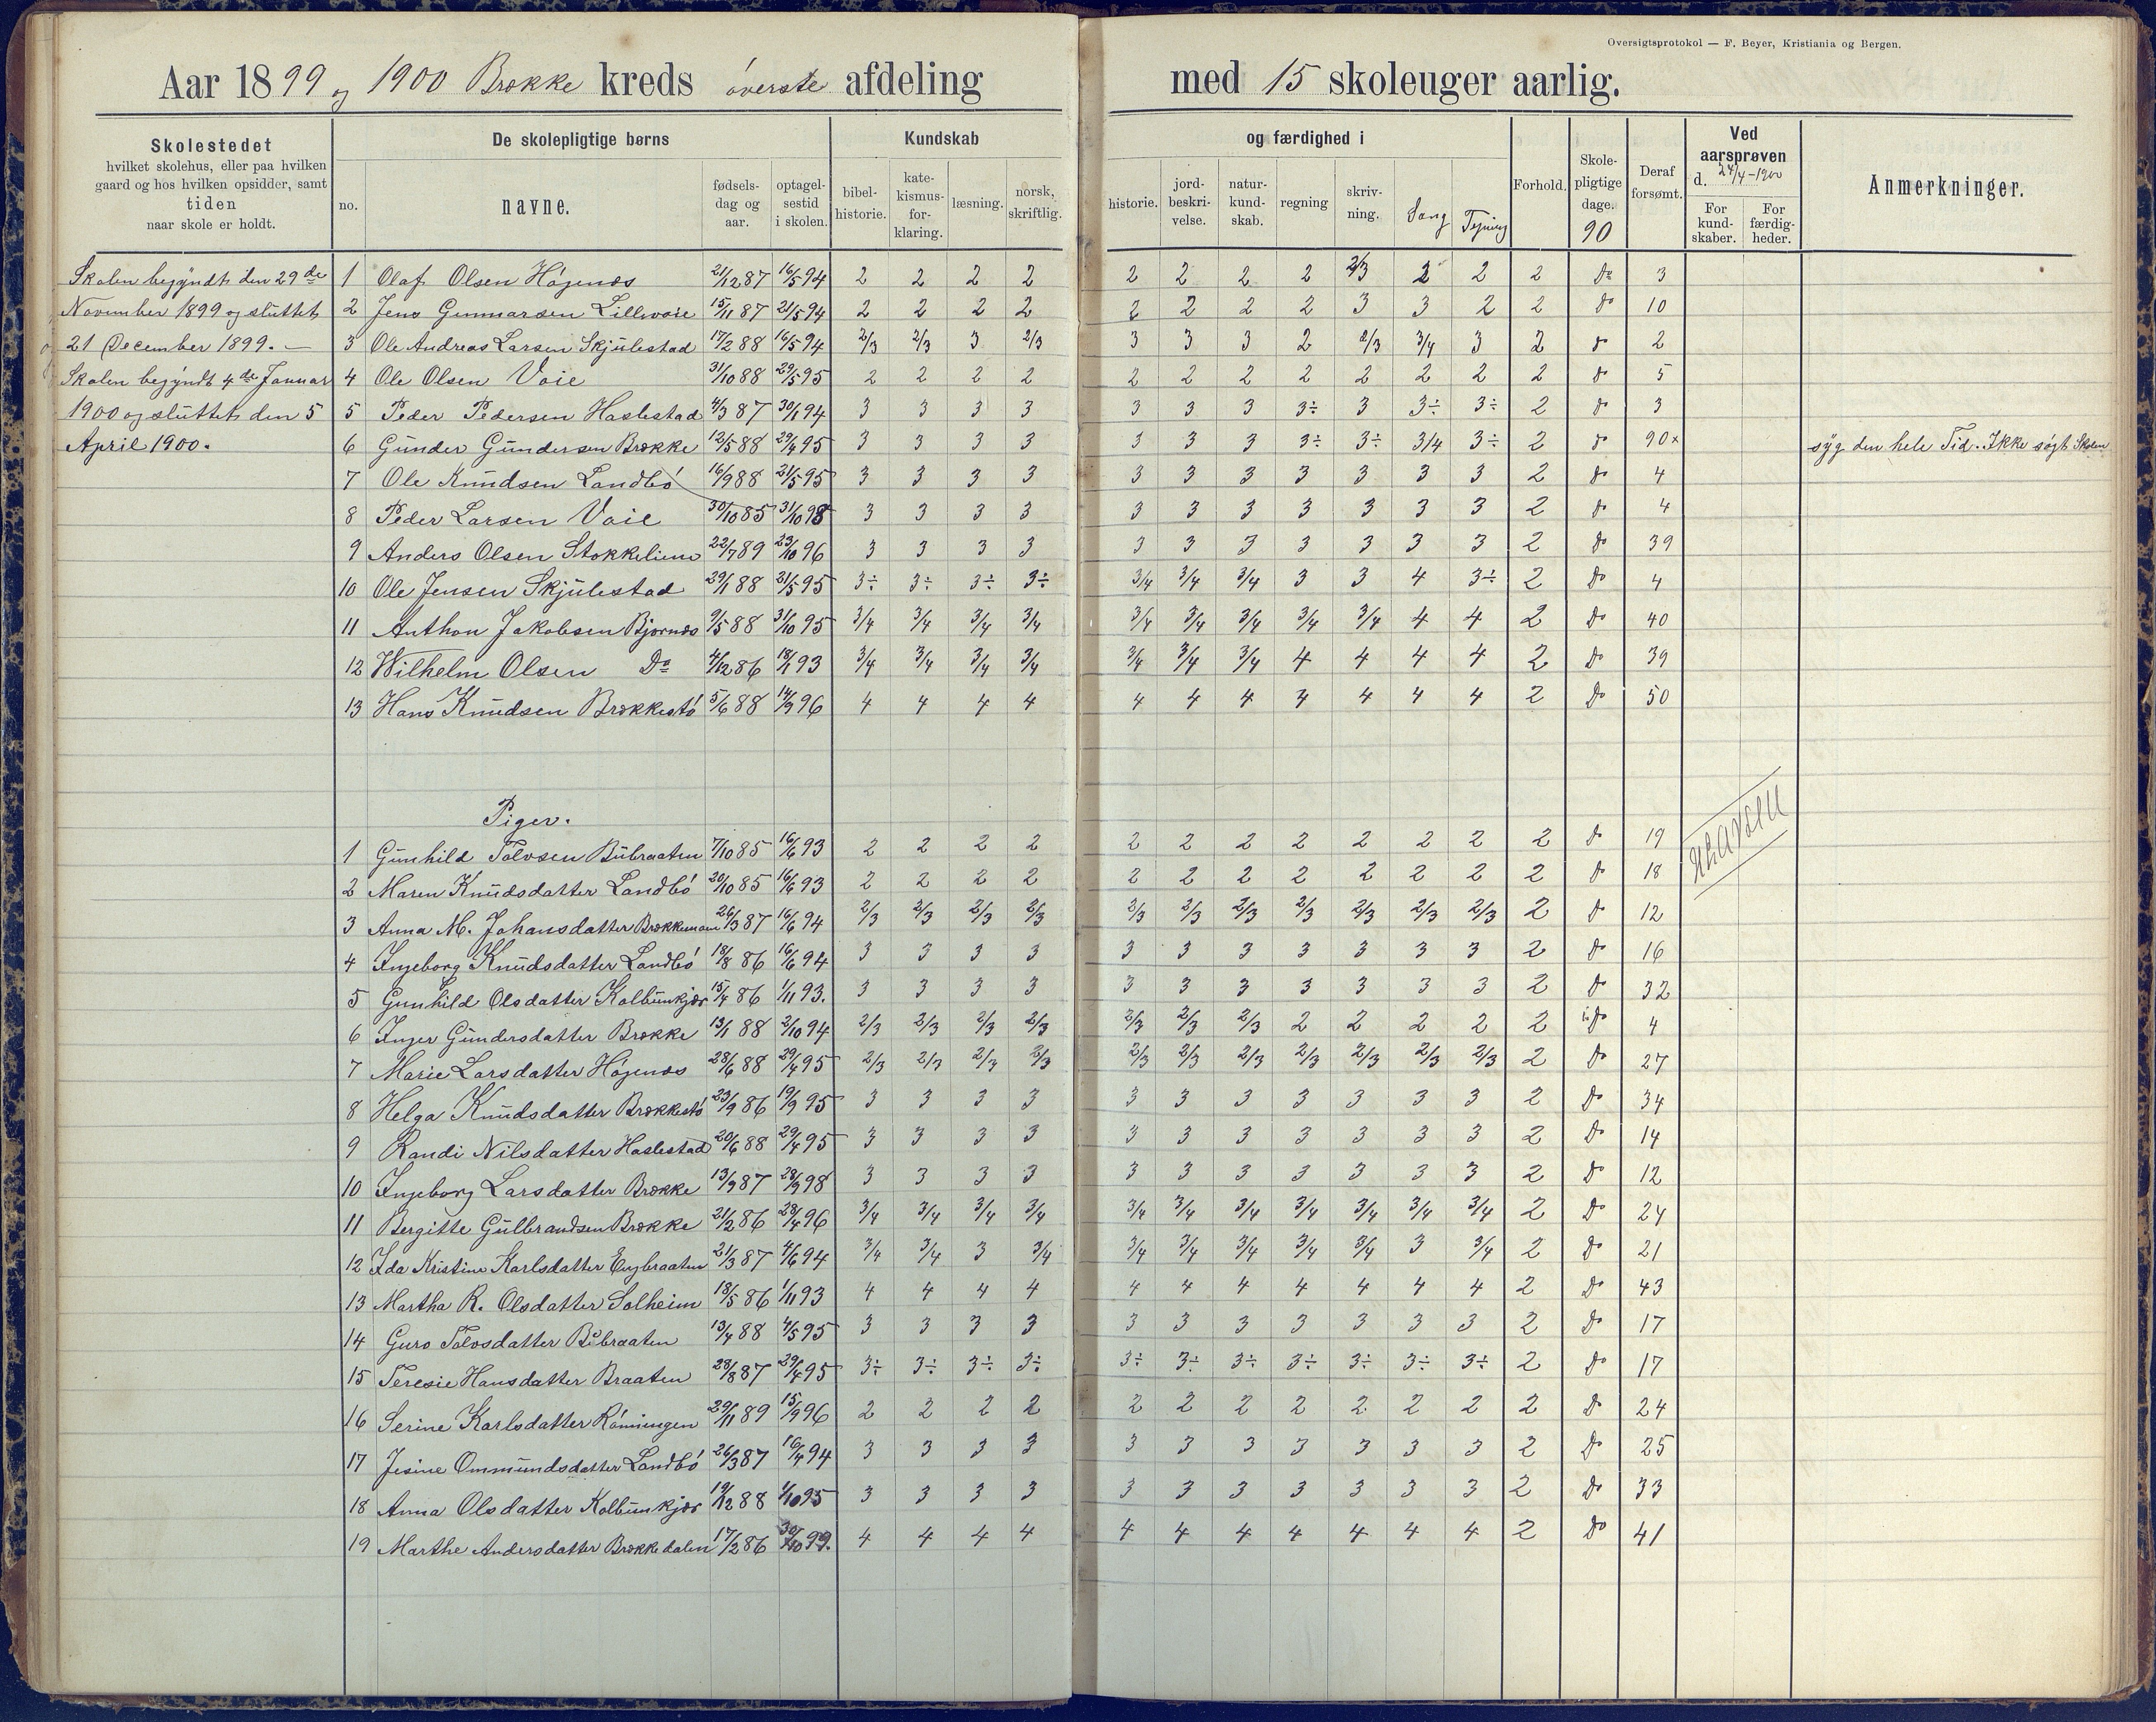 Oversigtsprotokol — F. Beyer, Kristiania og Bergen.
Aar 1899 og 1900 Brække kreds øverste afdeling med 15 skoleuger aarlig.
Skolestedet
hvilket skolehus, eller paa hvilken
gaard og hos hvilken opsidder, samt
tiden
naar skole er holdt.
De skolepligtige børns
no.
navne.
fødsels-
dag og
aar.
optagel-
sestid
i skolen.
Kundskab
bibel-
historie.
kate-
kismus-
for-
klaring.
læsning.
norsk,
skriftlig.
og færdighed i
historie.
jord-
beskri-
velse.
natur-
kund-
skab.
regning
skriv-
ning.
Sang
Tejning
Forhold.
Skole-
pligtige
dage.
90
Deraf
forsømt.
Ved
aarsprøven
d. 24/4-1900
For
kund-
skaber.
For
færdig-
heder.
Anmerkninger.
Skolen begyndt den 29de
November 1899 og sluttet
21 December 1899. —
Skolen begyndt 4de Januar
1900 og sluttet den 5
April 1900.
1 Olaf Olsen Högenæs 21/12 87 16/5 94 2 2 2 2 2 2 2 2 2/3 2 2 2 Do 3
2 Jens Gunnarsen Lillevoie 15/11 87 21/5 94 2 2 2 2 2 2 2 2 3 3 2 2 Do 10
3 Ole Andreas Larsen Skjulestad 17/2 88 16/5 94 2/3 2/3 3 2/3 3 3 3 2 2/3 3/4 3 2 Do 2
4 Ole Olsen Voie 31/10 88 29/5 95 2 2 2 2 2 2 2 2 2 2 2 2 Do 5
5 Peder Pedersen Haslestad 4/3 87 30/1 94 3 3 3 3 3 3 3 3÷ 3 3÷ 3÷ 2 Do 3
6 Gunder Gundersen Brække 12/5 88 29/4 95 3 3 3 3 3 3 3 3÷ 3÷ 3/4 3÷ 2 Do 90x syg den hele Tid. Ikke søgt Skolen
7 Ole Knudsen Landbö 16/9 88 21/5 95 3 3 3 3 3 3 3 3 3 3 3 2 Do 4
8 Peder Larsen Voie 30/10 85 31/10 95 3 3 3 3 3 3 3 3 3 3 3 2 Do 4
9 Anders Olsen Stokkelien 22/7 89 23/10 96 3 3 3 3 3 3 3 3 3 3 3 2 Do 39
10 Ole Jensen Skjulestad 29/1 88 21/5 95 3÷ 3÷ 3÷ 3÷ 3/4 3/4 3/4 3 3 4 3÷ 2 Do 4
11 Anthon Jakobsen Bjornæs 9/5 88 31/10 95 3/4 3/4 3/4 3/4 3/4 3/4 3/4 3/4 3/4 4 4 2 Do 40
12 Wilhelm Olsen Do 4/12 86 18/1 93 3/4 3/4 3/4 3/4 3/4 3/4 3/4 4 4 4 4 2 Do 39
13 Hans Knudsen Brækkestö 5/6 88 14/9 96 4 4 4 4 4 4 4 4 4 4 4 2 Do 50
Piger.
1 Gunhild Tolvsen Bubraaten 7/10 85 16/6 93 2 2 2 2 2 2 2 2 2 2 2 2 Do 19
2 Maren Knudsdatter Landbö 20/10 85 16/6 93 2 2 2 2 2 2 2 2 2 2 2 2 Do 18
3 Anna M. Johansdatter 26/3 87 16/6 94 2/3 2/3 2/3 2/3 2/3 2/3 2/3 2/3 2/3 2/3 2/3 2 Do 12
4 Ingeborg Knudsdatter Landbö 18/8 86 16/6 94 3 3 3 3 3 3 3 3 3 3 3 2 Do 16
5 Gunhild Olsdatter Kolbunkjær 15/4 86 1/11 93. 3 3 3 3 3 3 3 3 3 3 3 2 Do 32
6 Inger Gundersdatter Brække 13/1 88 2/10 94 2/3 2/3 2/3 2/3 2/3 2/3 2/3 2 2 2 2 2 Do 4
7 Marie Larsdatter Högenæs 28/6 88 29/4 95 2/3 2/3 2/3 2/3 2/3 2/3 2/3 2/3 2/3 2/3 2/3 2 Do 27
8 Helga Knudsdatter Brækkestö 23/9 86 19/9 95 3 3 3 3 3 3 3 3 3 3 3 2 Do 34
9 Randi Nilsdatter Haslestad 20/6 88 29/4 95 3 3 3 3 3 3 3 3 3 3 3 2 Do 14
10 Ingeborg Larsdatter Brække 13/9 87 28/9 98 3 3 3 3 3 3 3 3 3 3 3 2 Do 12
11 Bergitte Gulbrandsen Brække 21/2 86 28/4 96 3/4 3/4 3/4 3/4 3/4 3/4 3/4 3/4 3/4 3/4 3/4 2 Do 24
12 Ida Kristine Karlsdatter Engbraaten 21/3 87 4/6 94 3/4 3/4 3 3/4 3/4 3/4 3/4 3/4 3/4 3 3/4 2 Do 21
13 Martha R. Olsdatter Solheim 18/5 86 1/11 93 4 4 4 4 4 4 4 4 4 4 4 2 Do 43
14 Guro Tolvsdatter Bubraaten 13/4 88 4/5 95 3 3 3 3 3 3 3 3 3 3 3 2 Do 17
15 Teresie Hansdatter Braaten 28/8 87 29/4 95 3÷ 3÷ 3÷ 3÷ 3÷ 3÷ 3÷ 3÷ 3÷ 3÷ 3÷ 2 Do 17
16 Serine Karlsdatter Römingen 29/11 89 15/9 96 2 2 2 2 2 2 2 2 2 2 2 2 Do 24
17 Jesine Ommundsdatter Landbö 26/3 87 16/4 94 3 3 3 3 3 3 3 3 3 3 3 2 Do 25
18 Anna Olsdatter Kolbunkjær 19/12 88 1/10 95 3 3 3 3 3 3 3 3 3 3 3 2 Do 33
19 Marthe Andersdatter Brækkedalen 17/2 86 30/10 99. 4 4 4 4 4 4 4 4 4 4 4 2 Do 41